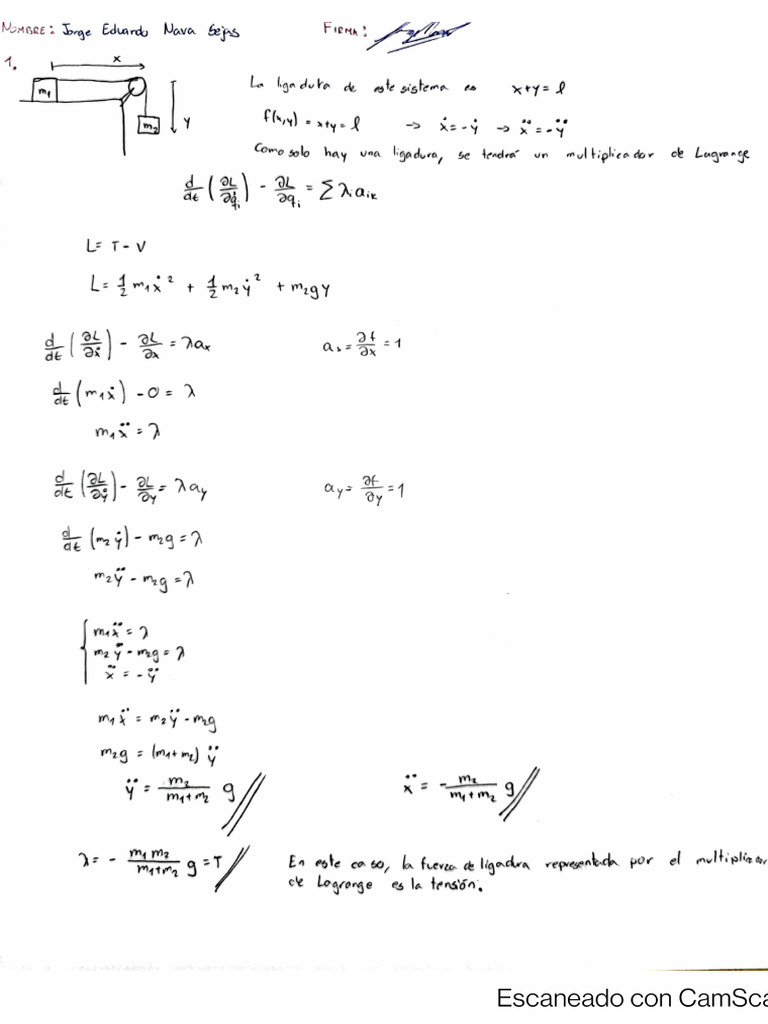 NOMBRE: Jorge Eduardo Nava Sejas FIRMA:
1.
x
m₁
m₂
y
La ligadura de este sistema es x+y=l
f(x,y) = x+y=l → ẋ=-ẏ → ẍ=-ÿ
Como solo hay una ligadura, se tendrá un multiplicador de Lagrange
d/dt (∂L/∂q̇ᵢ) - ∂L/∂qᵢ = Σ λᵢaᵢₖ
L= T-V
L= 1/2 m₁ẋ² + 1/2 m₂ẏ² + m₂gy
d/dt (∂L/∂ẋ) - ∂L/∂x = λaₓ aₓ= ∂f/∂x = 1
d/dt (m₁ẋ) - 0 = λ
m₁ẍ = λ
d/dt (∂L/∂ẏ) - ∂L/∂y = λa_y a_y= ∂f/∂y = 1
d/dt (m₂ẏ) - m₂g = λ
m₂ÿ - m₂g = λ
m₁ẍ = λ
m₂ÿ - m₂g = λ
ẍ = -ÿ
m₁ẍ = m₂ÿ - m₂g
m₂g = (m₁+m₂) ÿ
ÿ = m₂/(m₁+m₂) g ẍ = - m₂/(m₁+m₂) g
λ = - m₁m₂/(m₁+m₂) g = T En este caso, la fuerza de ligadra representada por el multiplicador
de Lagrange es la tensión.
Escaneado con CamSca